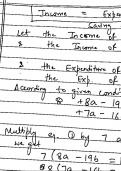 Income = Expe
Saving
Let the Income of
& the Income of
& the Expenditure of
& the Exp.
According to given cond
8 +8a - 19
+7a - 16
Multiply eq. ① by 7 a
we get
7 (8a - 19b =
8 (7a - 16b =